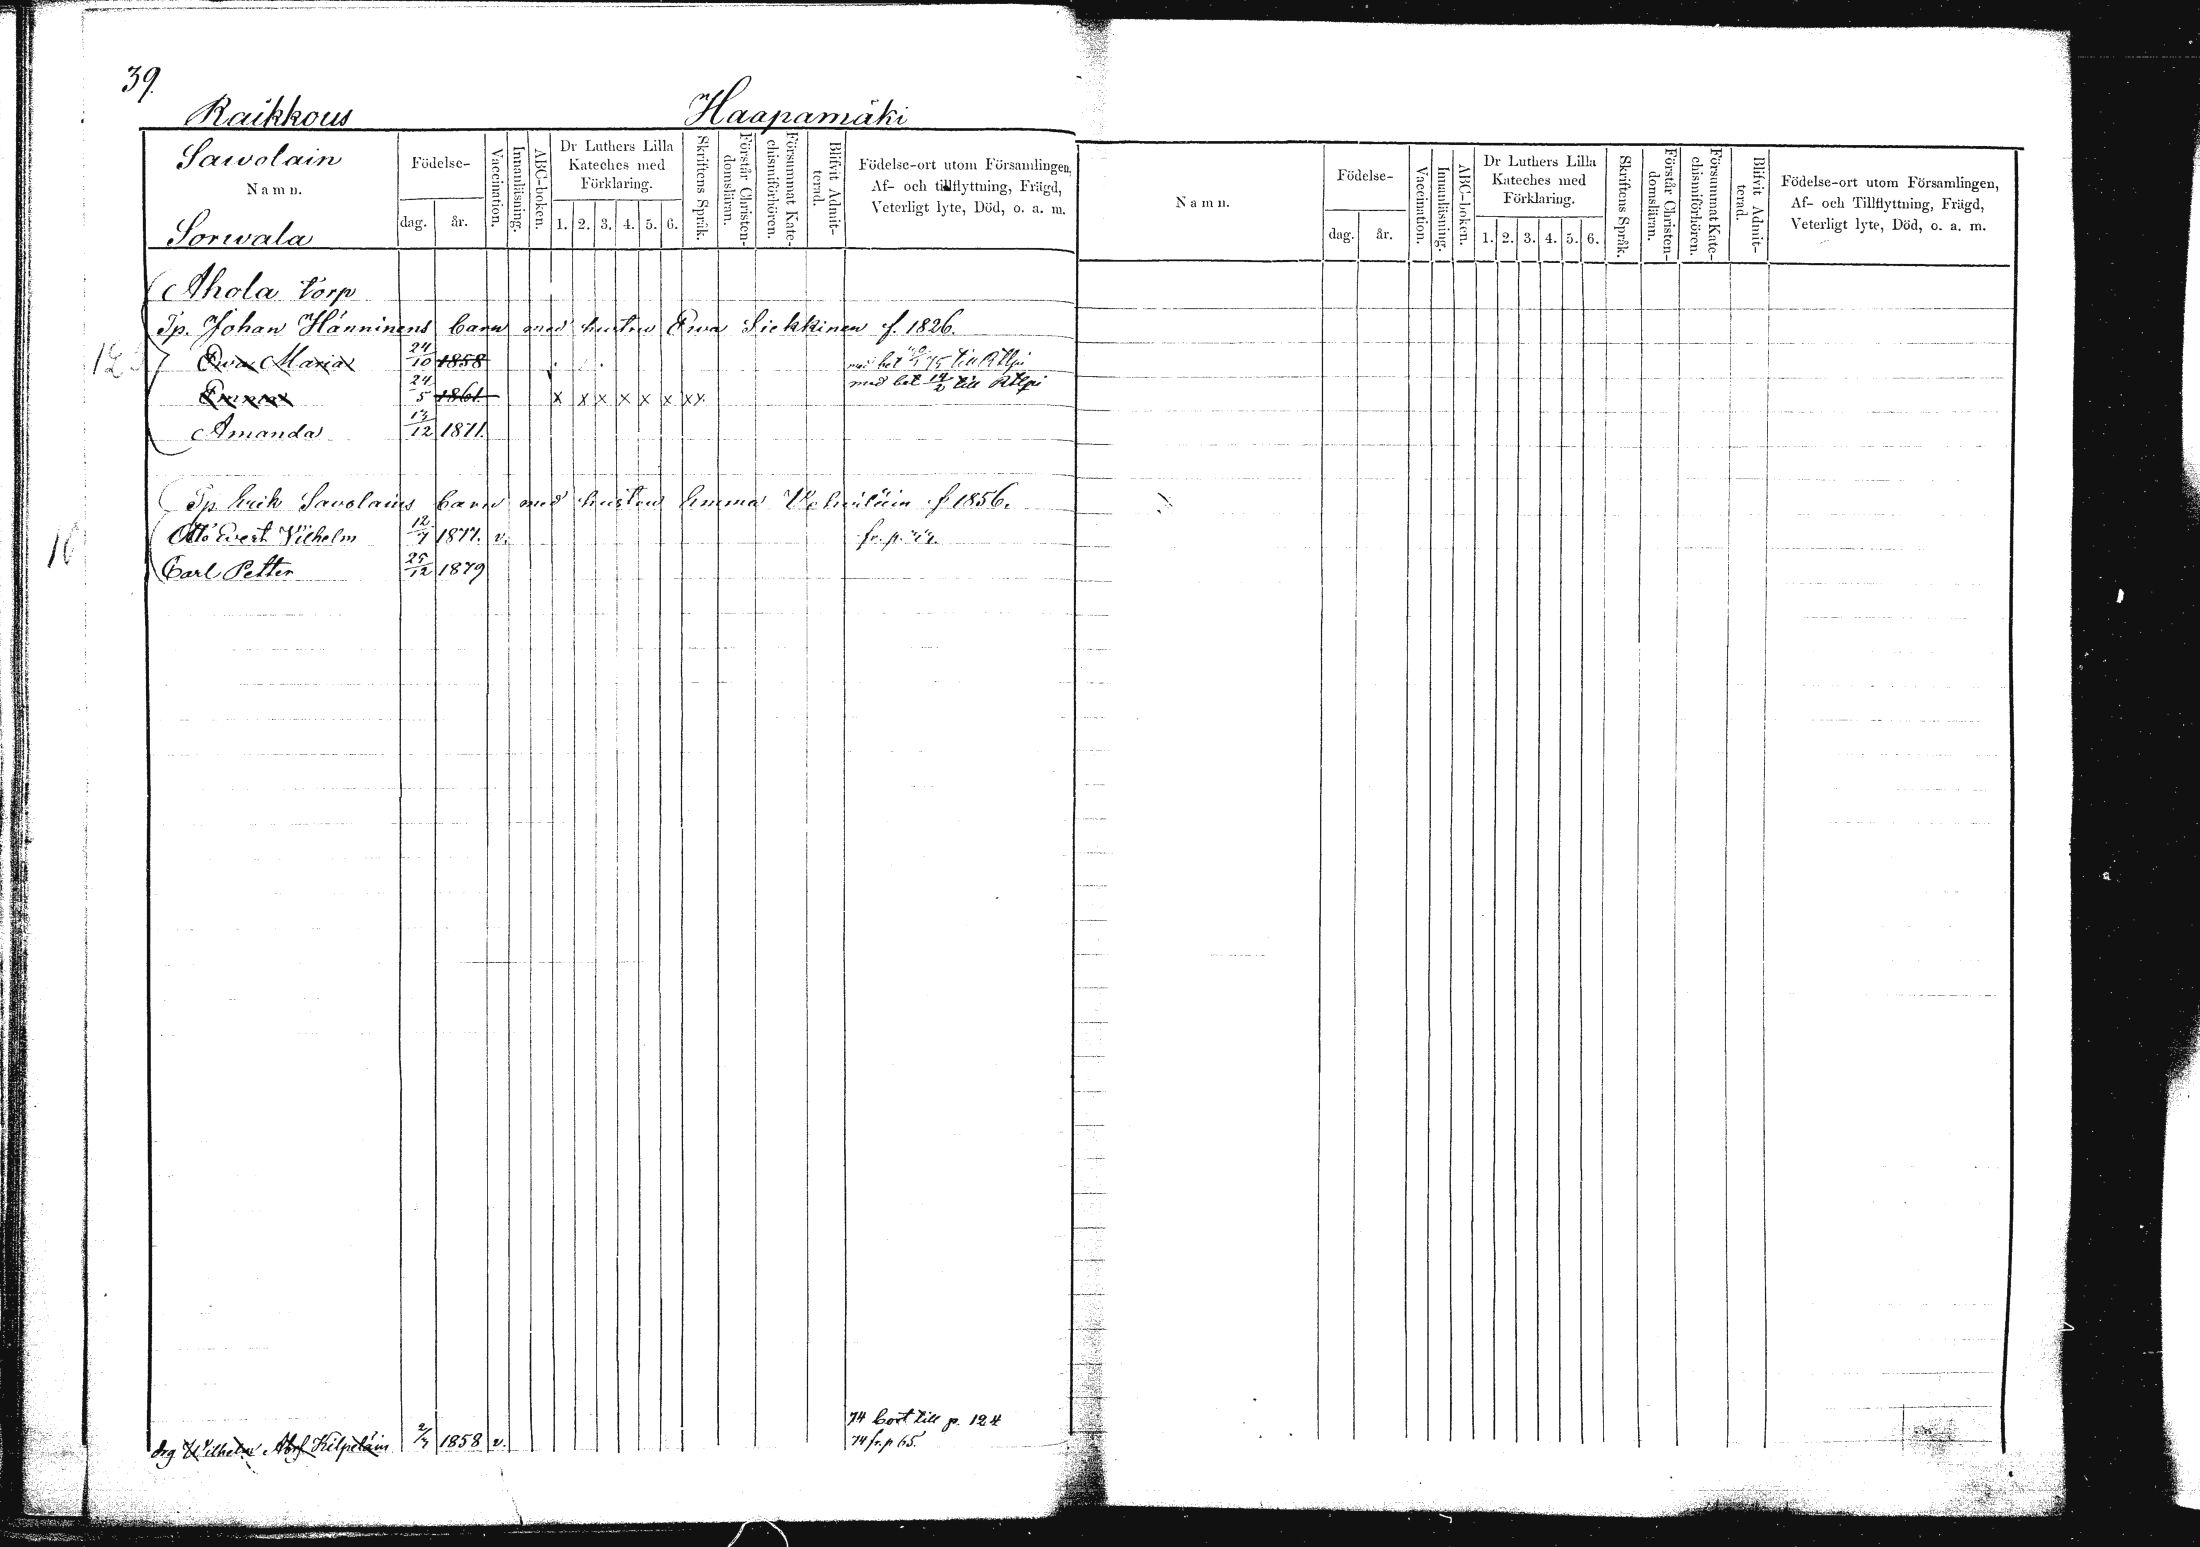 39.
Raikkous Haapamäki
Sawolain
Namn.
Sorvala
Födelse-
dag. år.
Vaccination.
Innanläsning.
ABC-boken.
Dr Luthers Lilla
Kateches med
Förklaring.
1. 2. 3. 4. 5. 6.
Skriftens Språk.
Förstår Christen-
domsläran.
Försummat Kate-
chismiförhören.
Blifvit Admit-
terad.
Födelse-ort utom Församlingen,
Af- och tillflyttning, Frägd,
Veterligt lyte, Död, o. a. m.
Ahola torp
Tp. Johan Hänninens barn med hustru Ewa Siekkinen f. 1826.
Ewa Maria 24/10 1858 med bet 75 till Rtlpi
Emma 24/5 1861. x x x x x x xx med bet 14/2 till Rtlpi
Amanda 13/12 1871.
Tp Erik Savolains barn med hustru Emma f 1856.
Otto Evert Vilhelm 12/7 1877. v. fr. p.
Carl Petter 25/12 1879
74 bort till p. 124
drg Wilhelm Abrf Kilpeläin 2/3 1858 v. 74 fr. p 65.
Namn.
Födelse-
dag. år.
Vaccination.
Innanläsning.
ABC-boken.
Dr Luthers Lilla
Kateches med
Förklaring.
1. 2. 3. 4. 5. 6.
Skriftens Språk.
Förstår Christen-
domsläran.
Försummat Kate-
chismiförhören.
Blifvit Admit-
terad.
Födelse-ort utom Församlingen,
Af- och Tillflyttning, Frägd,
Veterligt lyte, Död, o. a. m.